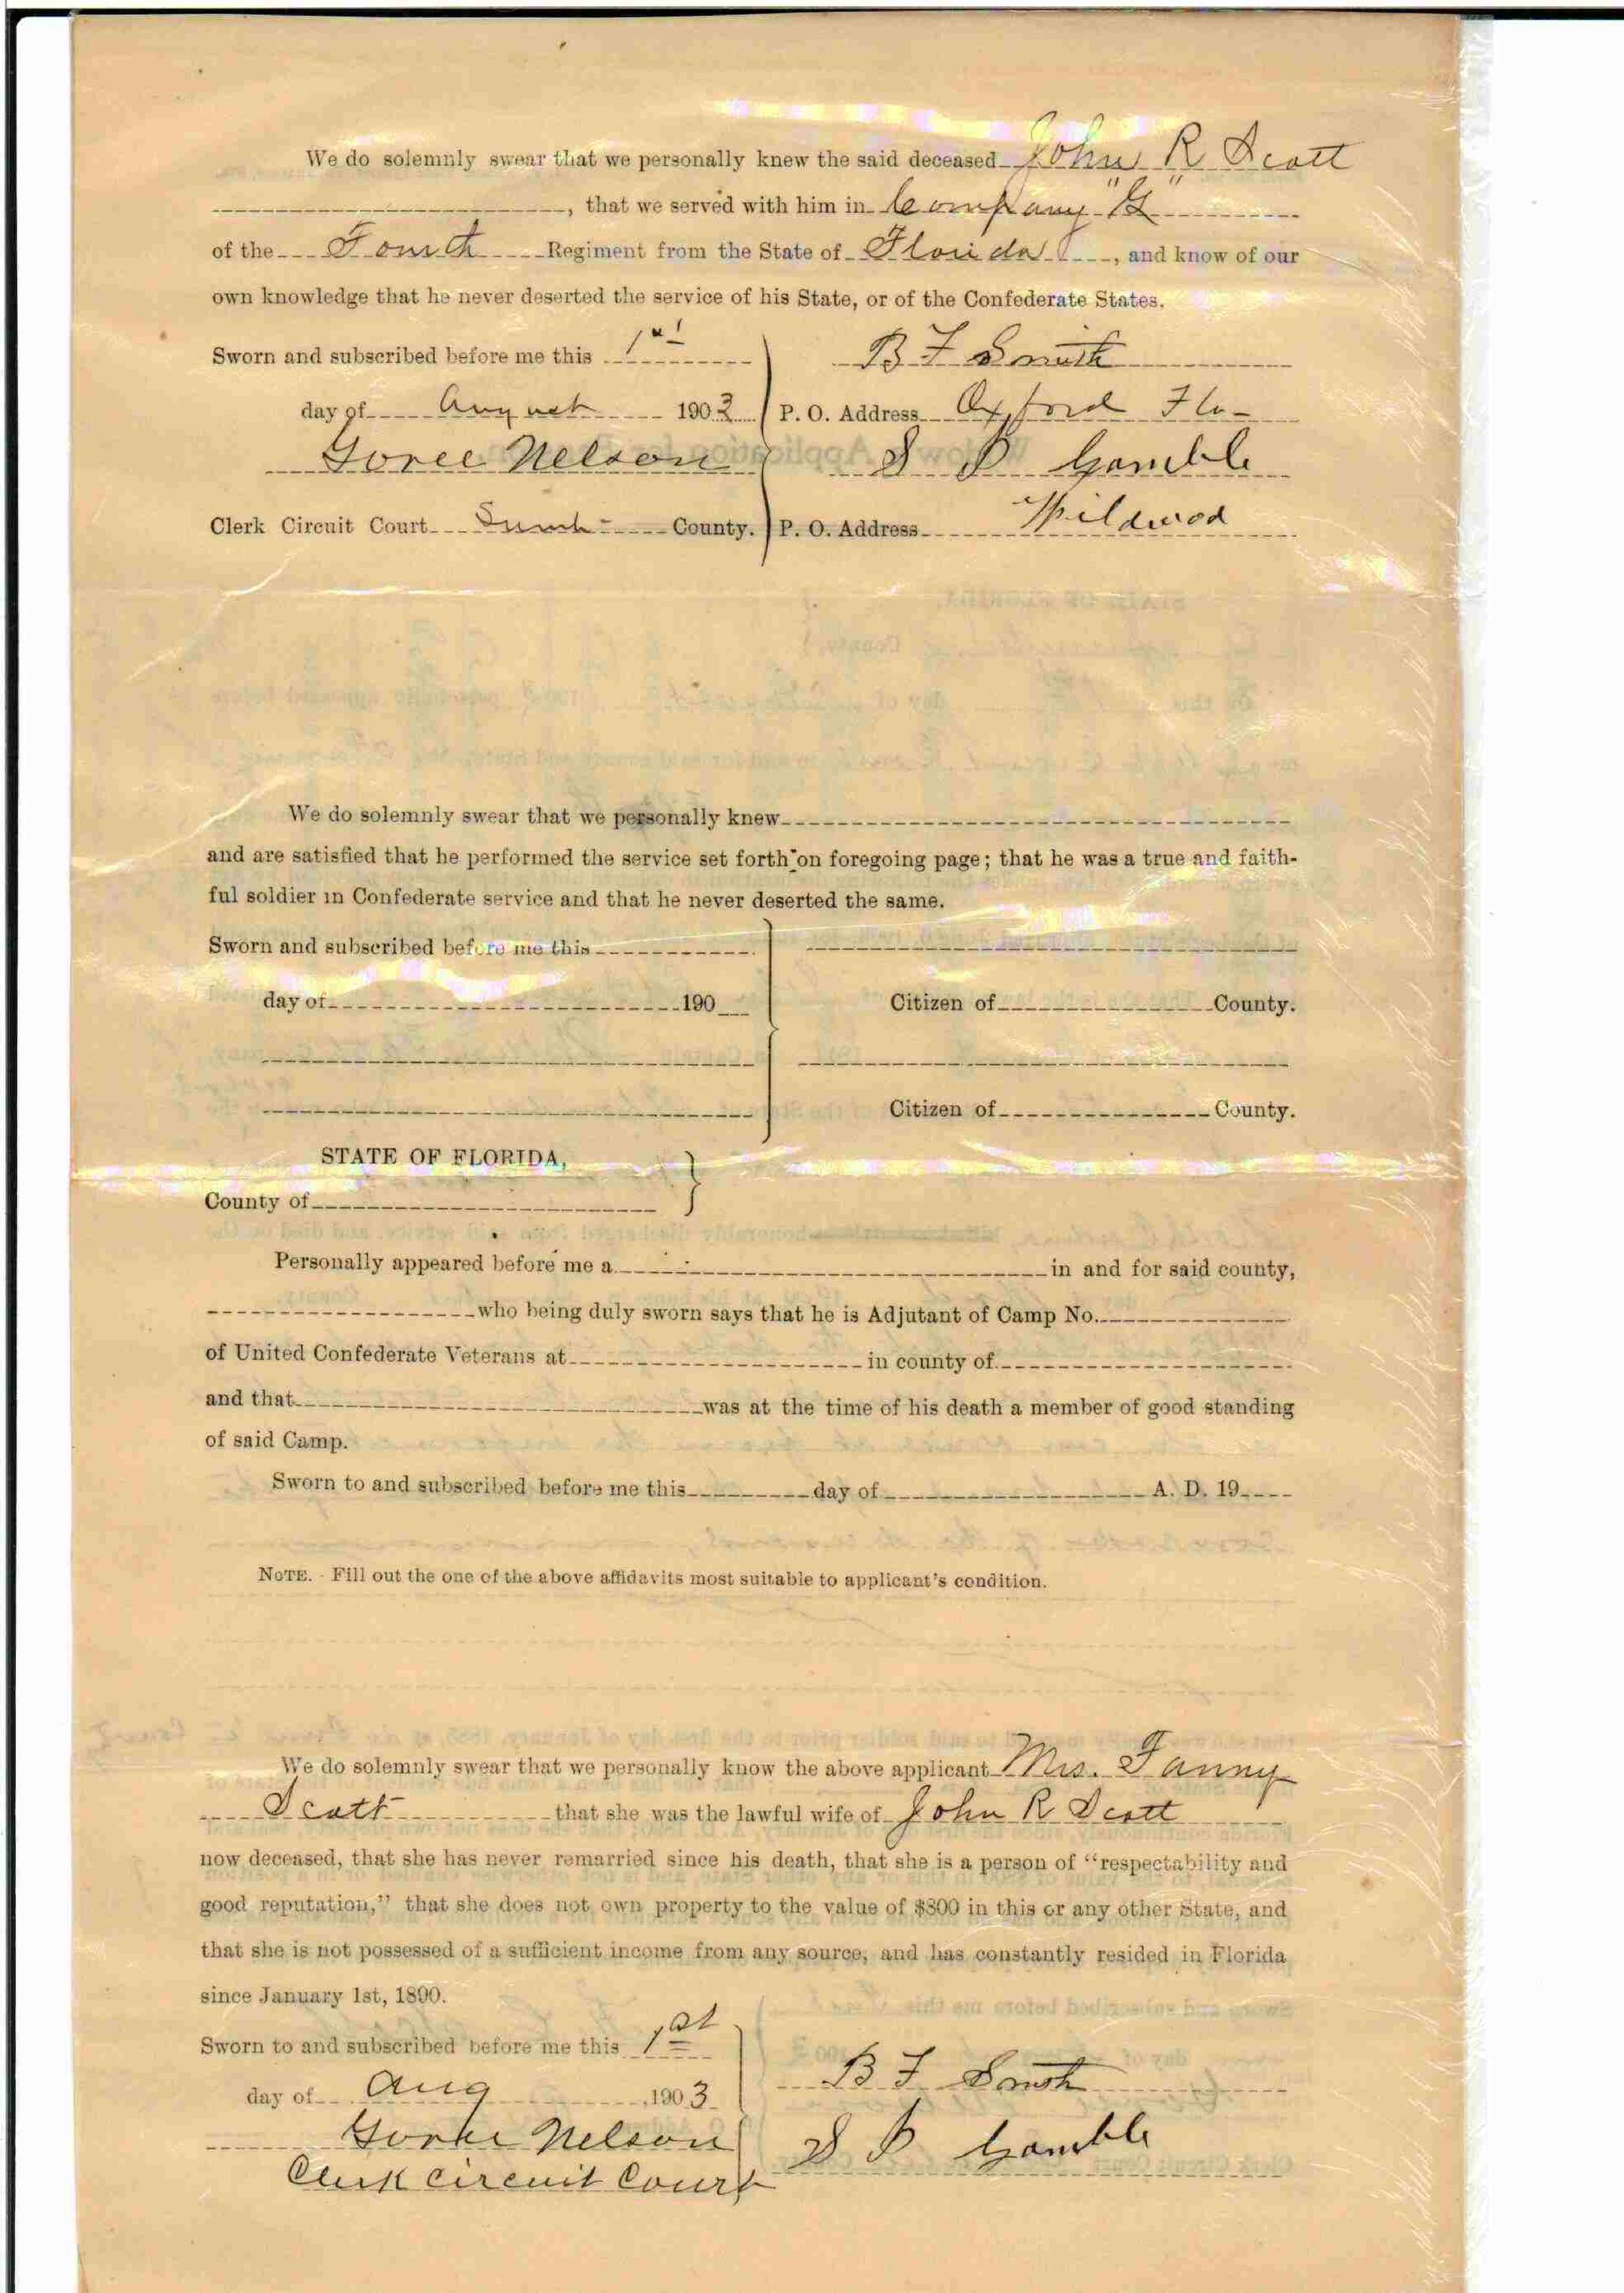 We do solemnly swear that we personally knew the said deceased John R Scott
, that we served with him in Company "G"
of the Fourth Regiment from the State of Florida, and know of our
own knowledge that he never deserted the service of his State, or of the Confederate States.
Sworn and subscribed before me this 1st
B F Smith
day of August 1903
P. O. Address Oxford Fla
Nelson
S P Gamble
Clerk Circuit Court County.
P. O. Address Wildwood
We do solemnly swear that we personally knew
and are satisfied that he performed the service set forth on foregoing page; that he was a true and faith-
ful soldier in Confederate service and that he never deserted the same.
Sworn and subscribed before me this
day of 190
Citizen of County.
Citizen of County.
STATE OF FLORIDA,
County of
Personally appeared before me a in and for said county,
who being duly sworn says that he is Adjutant of Camp No.
of United Confederate Veterans at in county of
and that was at the time of his death a member of good standing
of said Camp.
Sworn to and subscribed before me this day of A. D. 19
NOTE. - Fill out the one of the above affidavits most suitable to applicant's condition.
We do solemnly swear that we personally know the above applicant Mrs. Fanny
Scott that she was the lawful wife of John R Scott
now deceased, that she has never remarried since his death, that she is a person of "respectability and
good reputation," that she does not own property to the value of $800 in this or any other State, and
that she is not possessed of a sufficient income from any source, and has constantly resided in Florida
since January 1st, 1890.
Sworn to and subscribed before me this 1st
day of Aug, 1903
B F Smith
Nelson
S P Gamble
Clerk Circuit Court